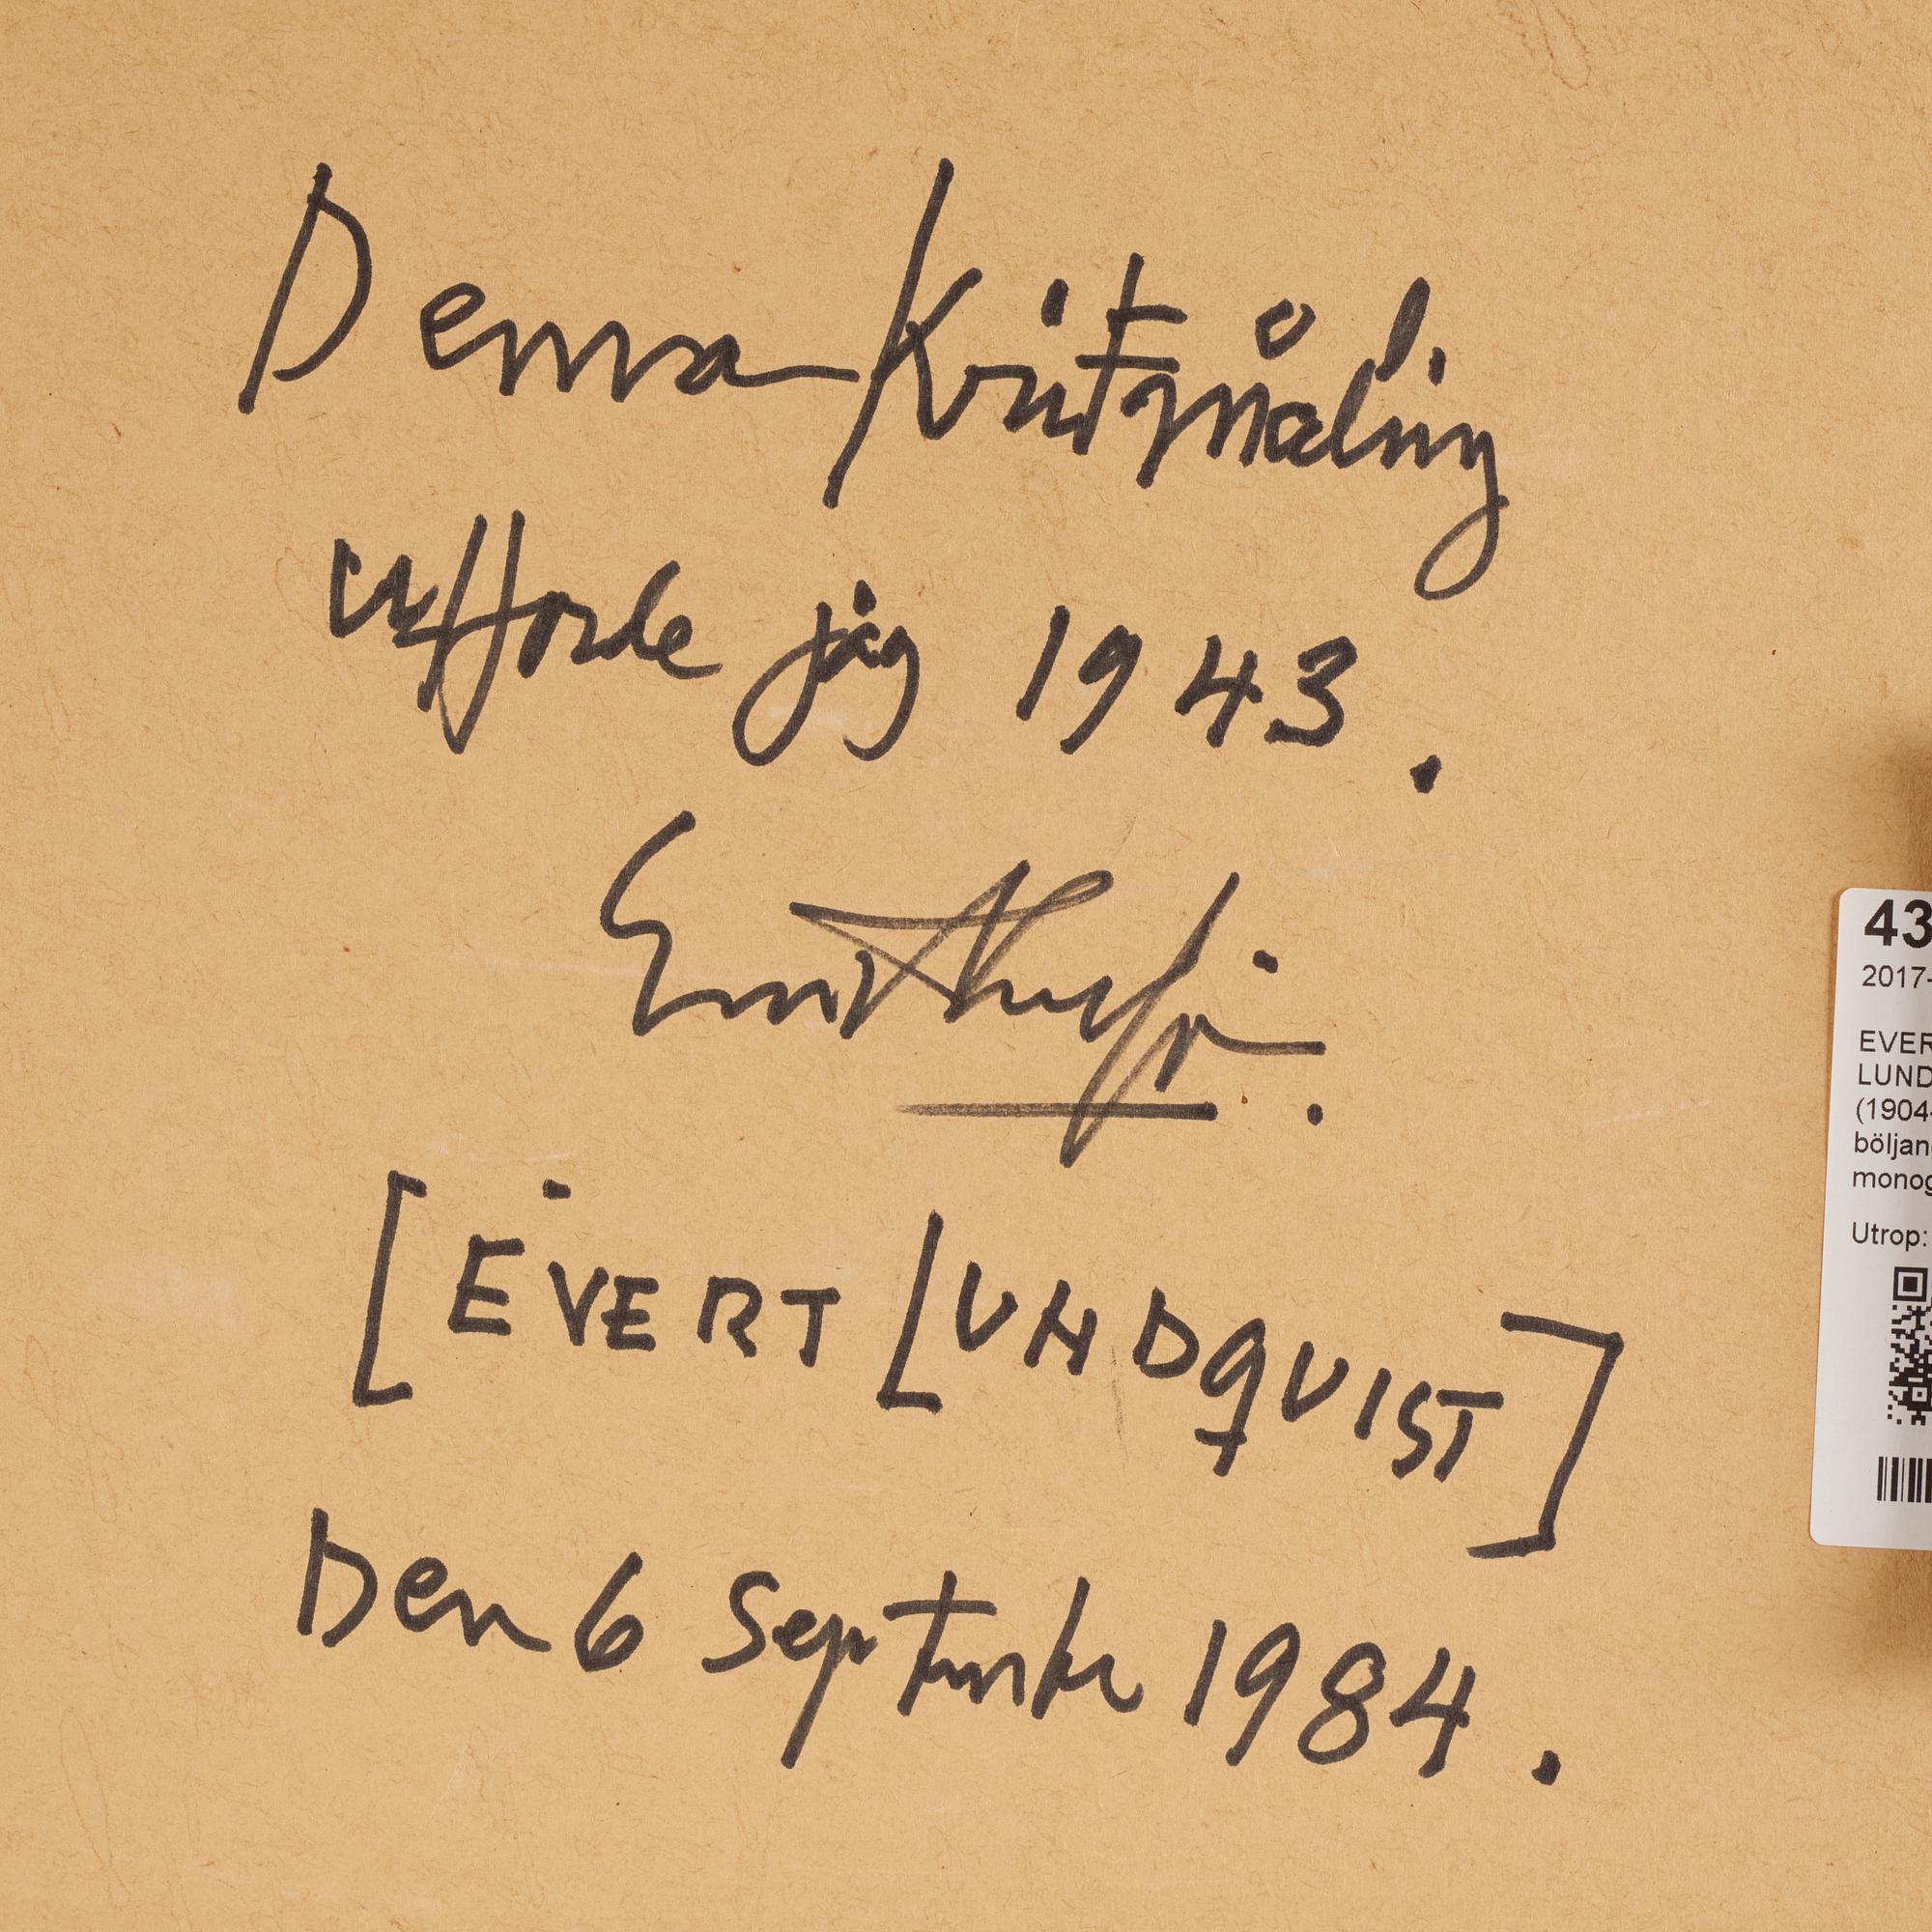 Denna Kritmålning
utförde jag 1943.
[EVERT LUNDQVIST]
Den 6 September 1984.
43
2017-
EVER
LUND
(1904-
böljan
monog
Utrop: